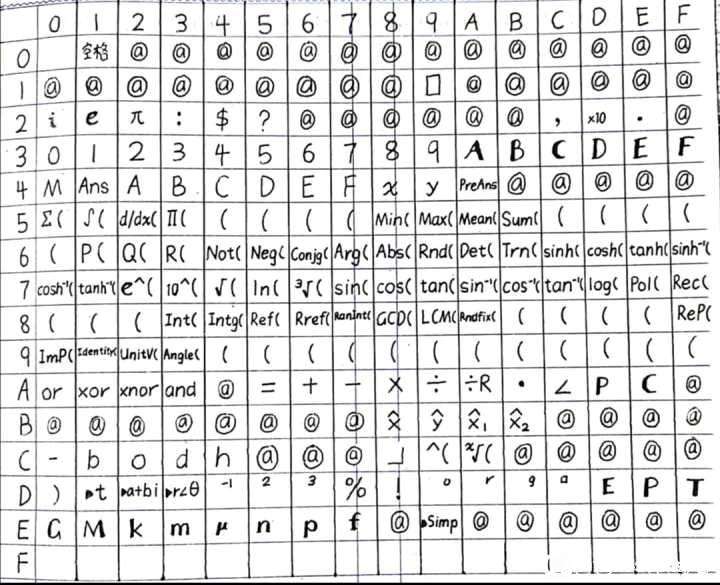 0 1 2 3 4 5 6 7 8 9 A B C D E F
0 空格 @ @ @ @ @ @ @ @ @ @ @ @ @ @
1 @ @ @ @ @ @ @ @ @ □ @ @ @ @ @ @
2 i e π : $ ? @ @ @ @ @ @ , ×10 . @
3 0 1 2 3 4 5 6 7 8 9 A B C D E F
4 M Ans A B C D E F x y PreAns @ @ @ @ @
5 Σ( ∫( d/dx( Π( ( ( ( ( Min( Max( Mean( Sum( ( ( ( (
6 ( P( Q( R( Not( Neg( Conjg( Arg( Abs( Rnd( Det( Trn( sinh( cosh( tanh( sinh⁻¹(
7 cosh⁻¹( tanh⁻¹( e^( 10^( √( ln( ³√( sin( cos( tan( sin⁻¹( cos⁻¹( tan⁻¹( log( Pol( Rec(
8 ( ( ( Int( Intg( Ref( Rref( RanInt( GCD( LCM( Rndfix( ( ( ( ( ReP(
9 ImP( Identity( UnitV( Angle( ( ( ( ( ( ( ( ( ( ( ( (
A or xor xnor and @ = + − × ÷ ÷R • ∠ P C @
B @ @ @ @ @ @ @ @ x̂ ŷ x̂₁ x̂₂ @ @ @ @
C - b o d h @ @ @ ┘ ^( ˣ√( @ @ @ @ @
D ) ▸t ▸a+bi ▸r∠θ ⁻¹ ² ³ % ! ° ʳ ᵍ ▫ E P T
E G M k m μ n p f @ ▸Simp @ @ @ @ @ @
F